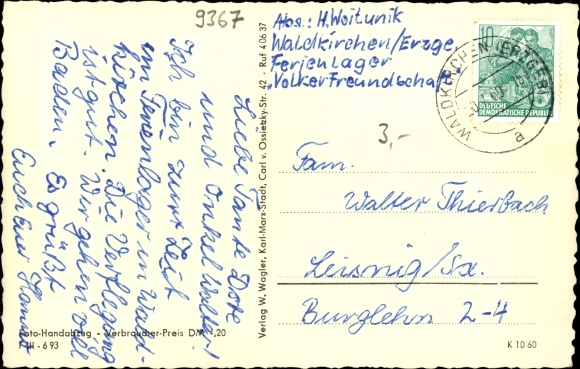 9367
Abs.: H. Woitunik
Waldkirchen/Erzge.
Ferienlager
"Völkerfreundschaft
10
DEUTSCHE
DEMOKRATISCHE REPUBLIK
WALDKIRCHEN (ERZGEB)
a
3,-
Liebe Tante Dore
und Onkel Walter!
Ich bin zurzeit
im Ferienlager in Wald-
kirchen. Die Verpflegung
ist gut. Wir gehen viel
Baden. Es grüßt
Euch Euer
Verlag W. Wagler, Karl-Marx-Stadt, Carl v. Ossietzky-Str. 42 · Ruf 406 37
Fam.
Walter Thierbach
Leisnig/Sa.
Burglehn 2-4
Foto-Handabzug · Verbraucher-Preis DM -,20
6 93
K 10 60